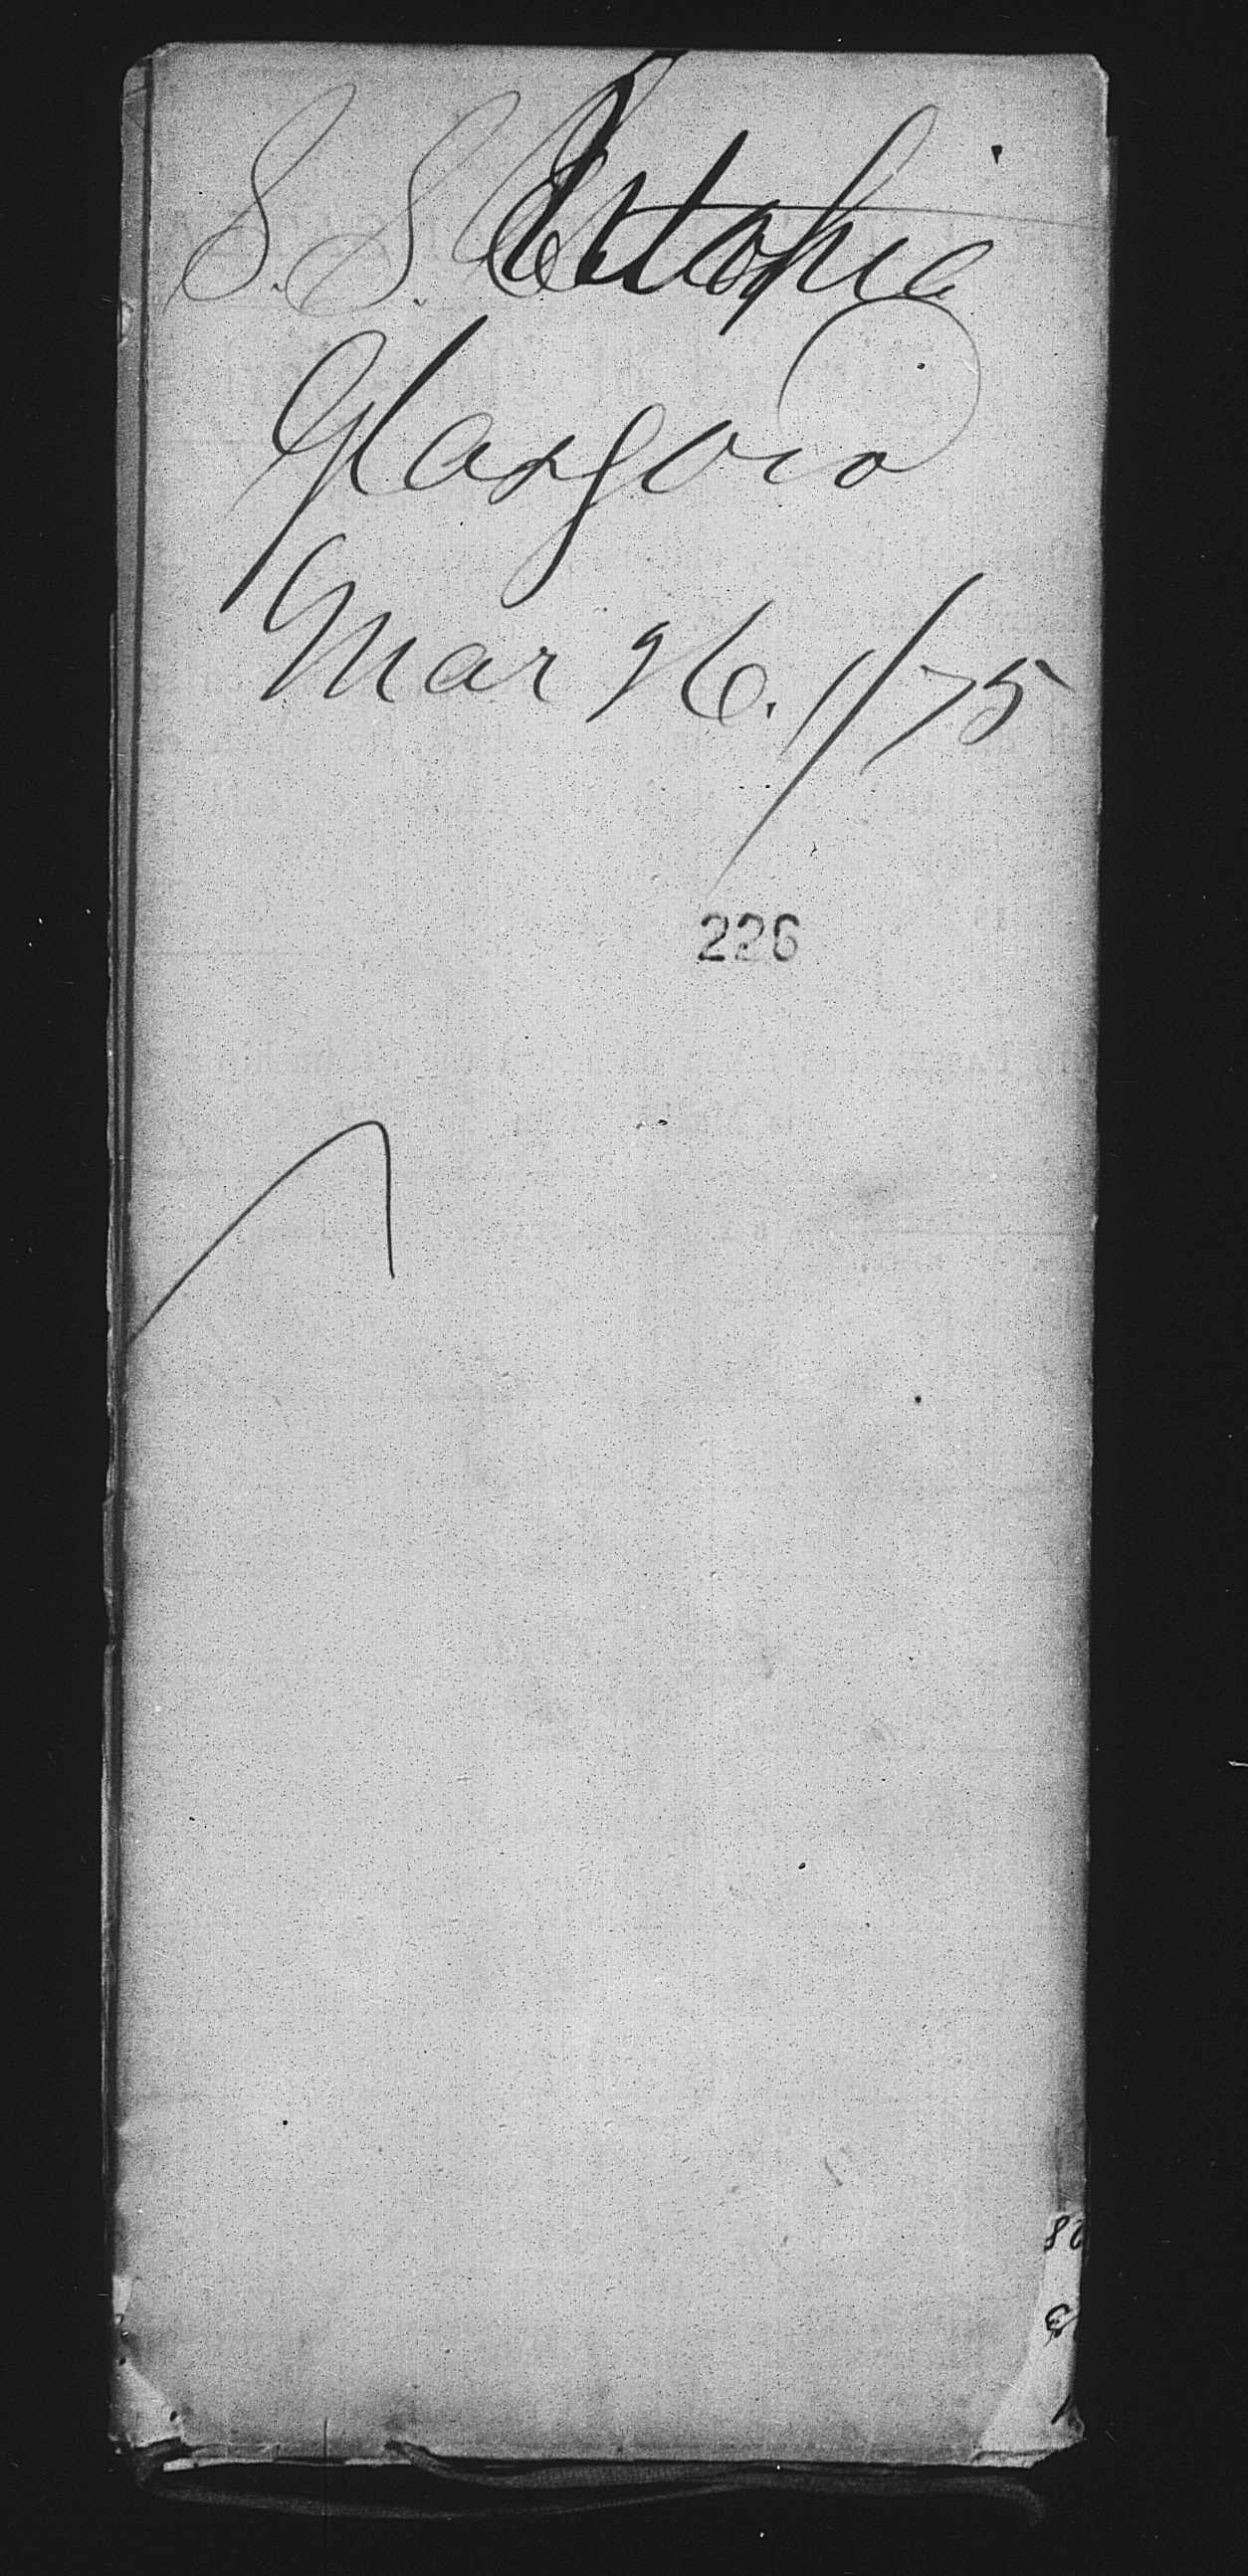 S. S. Utopia
Glasgow
Mar 26. /75
226